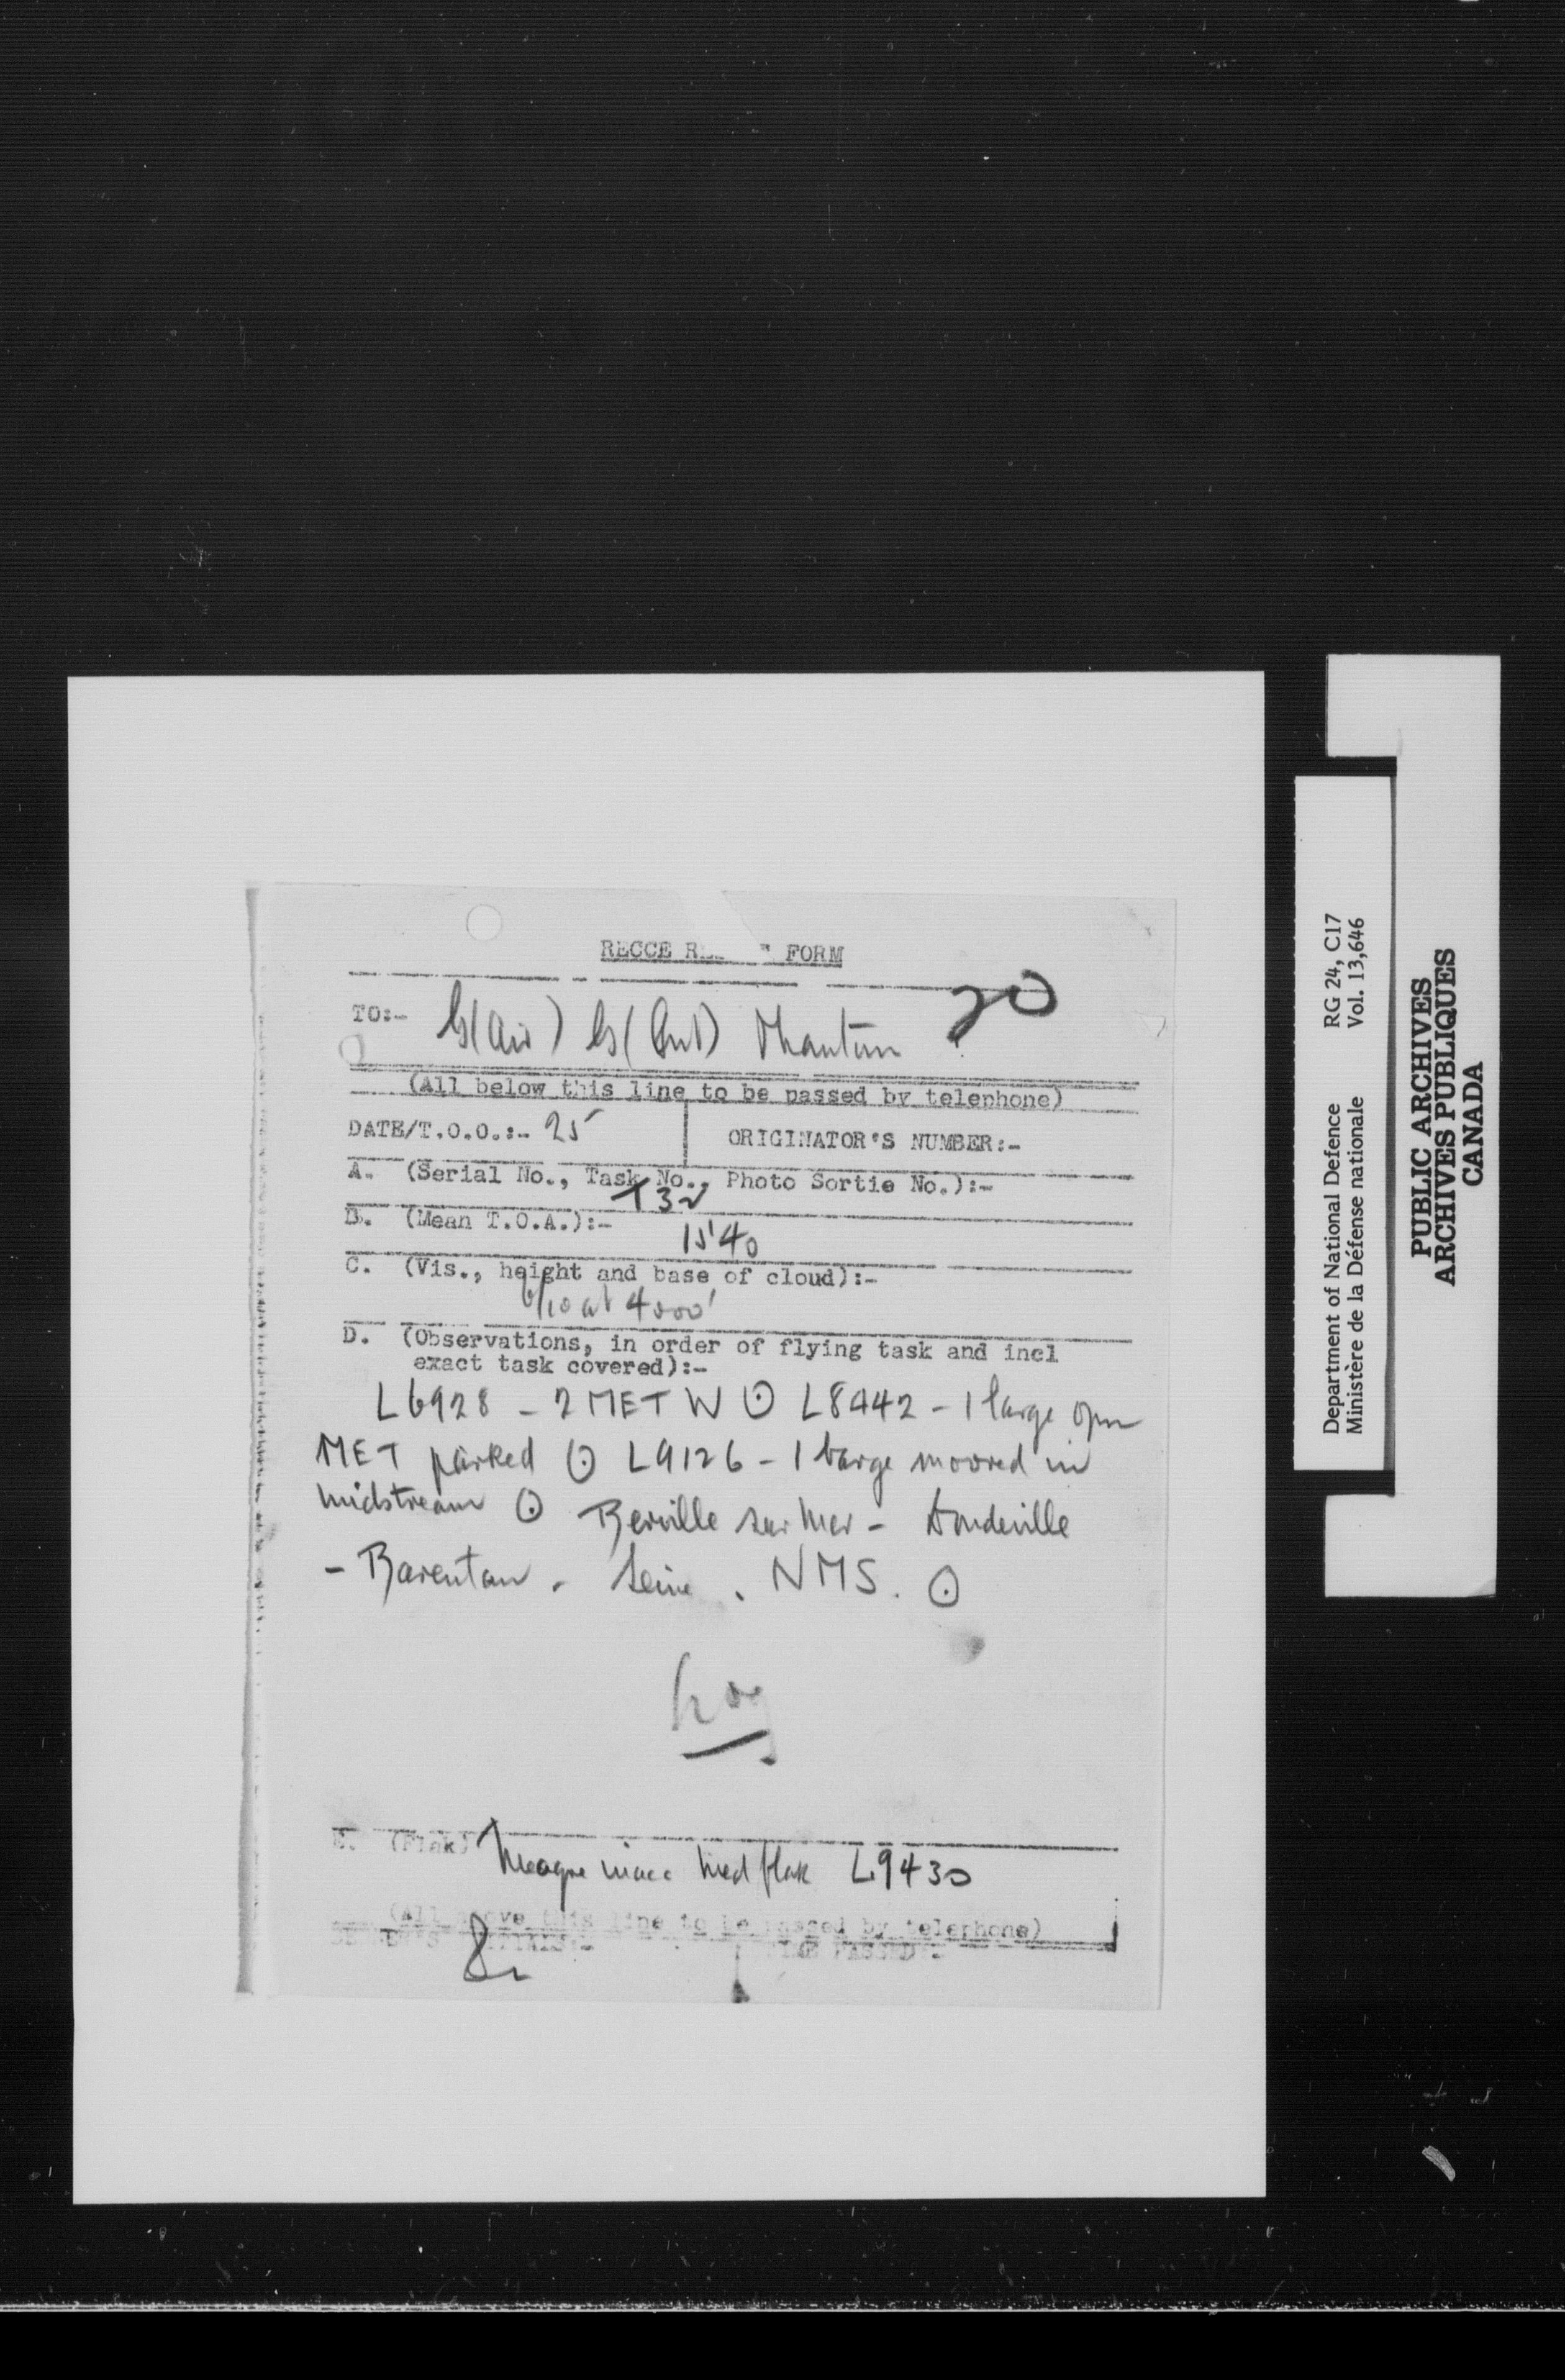 RECCE R FORM
20
TO:- G(Air) G(Int) Phantom
(All below this line to be passed by telephone)
DATE/T.O.O.:- 25
ORIGINATOR'S NUMBER:-
A. (Serial No., Task No., Photo Sortie No.):-
T32
B. (Mean T.O.A.):-
1540
C. (Vis., height and base of cloud):-
/10 at 4000'
D. (Observations, in order of flying task and incl
exact task covered):-
L6928 - 2 MET W ⊙ L8442 - 1 large open
MET parked ⊙ L9126 - 1 barge moored in
midstream ⊙ Berville sur Mer - Doudeville
- Barentan - Seine. NMS. ⊙
E. (Flak) Meagre inacc med flak L9430
(All above this line to be passed by telephone)
Department of National Defence RG 24, C17
Ministère de la Défense nationale Vol. 13,646
PUBLIC ARCHIVES
ARCHIVES PUBLIQUES
CANADA